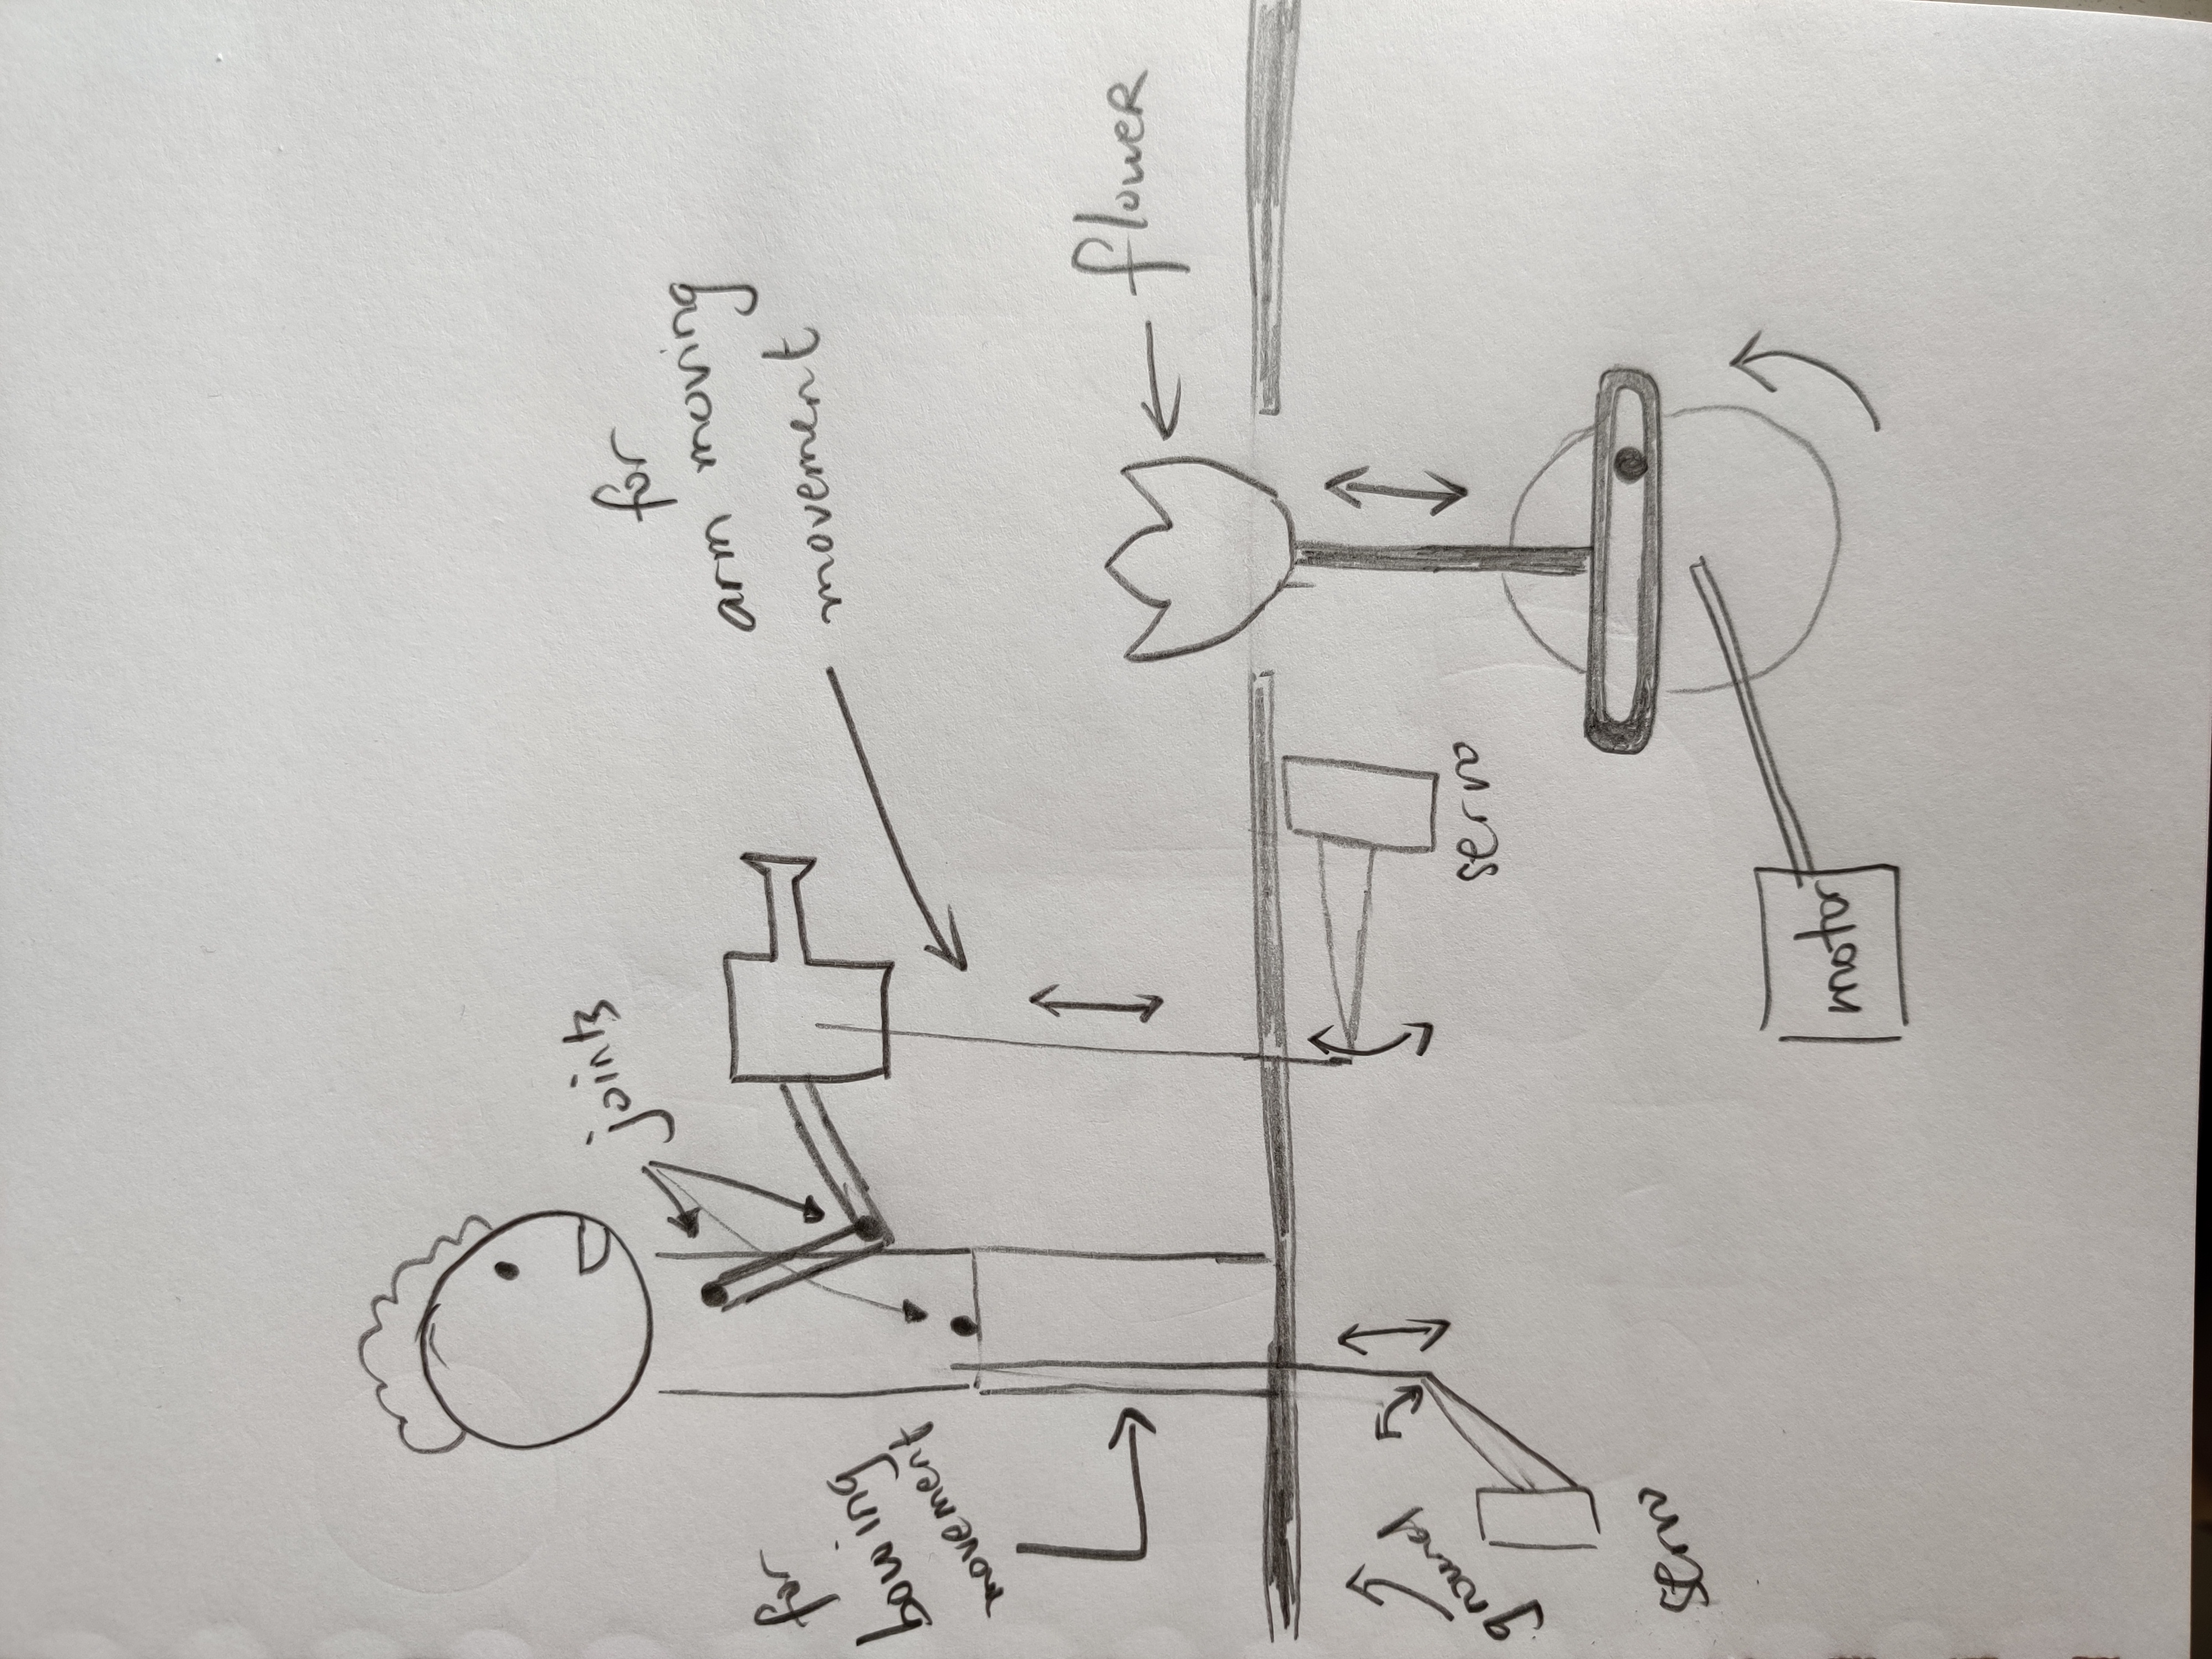 joints
for
arm moving
movement
for
bowing
movement
flower
ground
servo
servo
motor